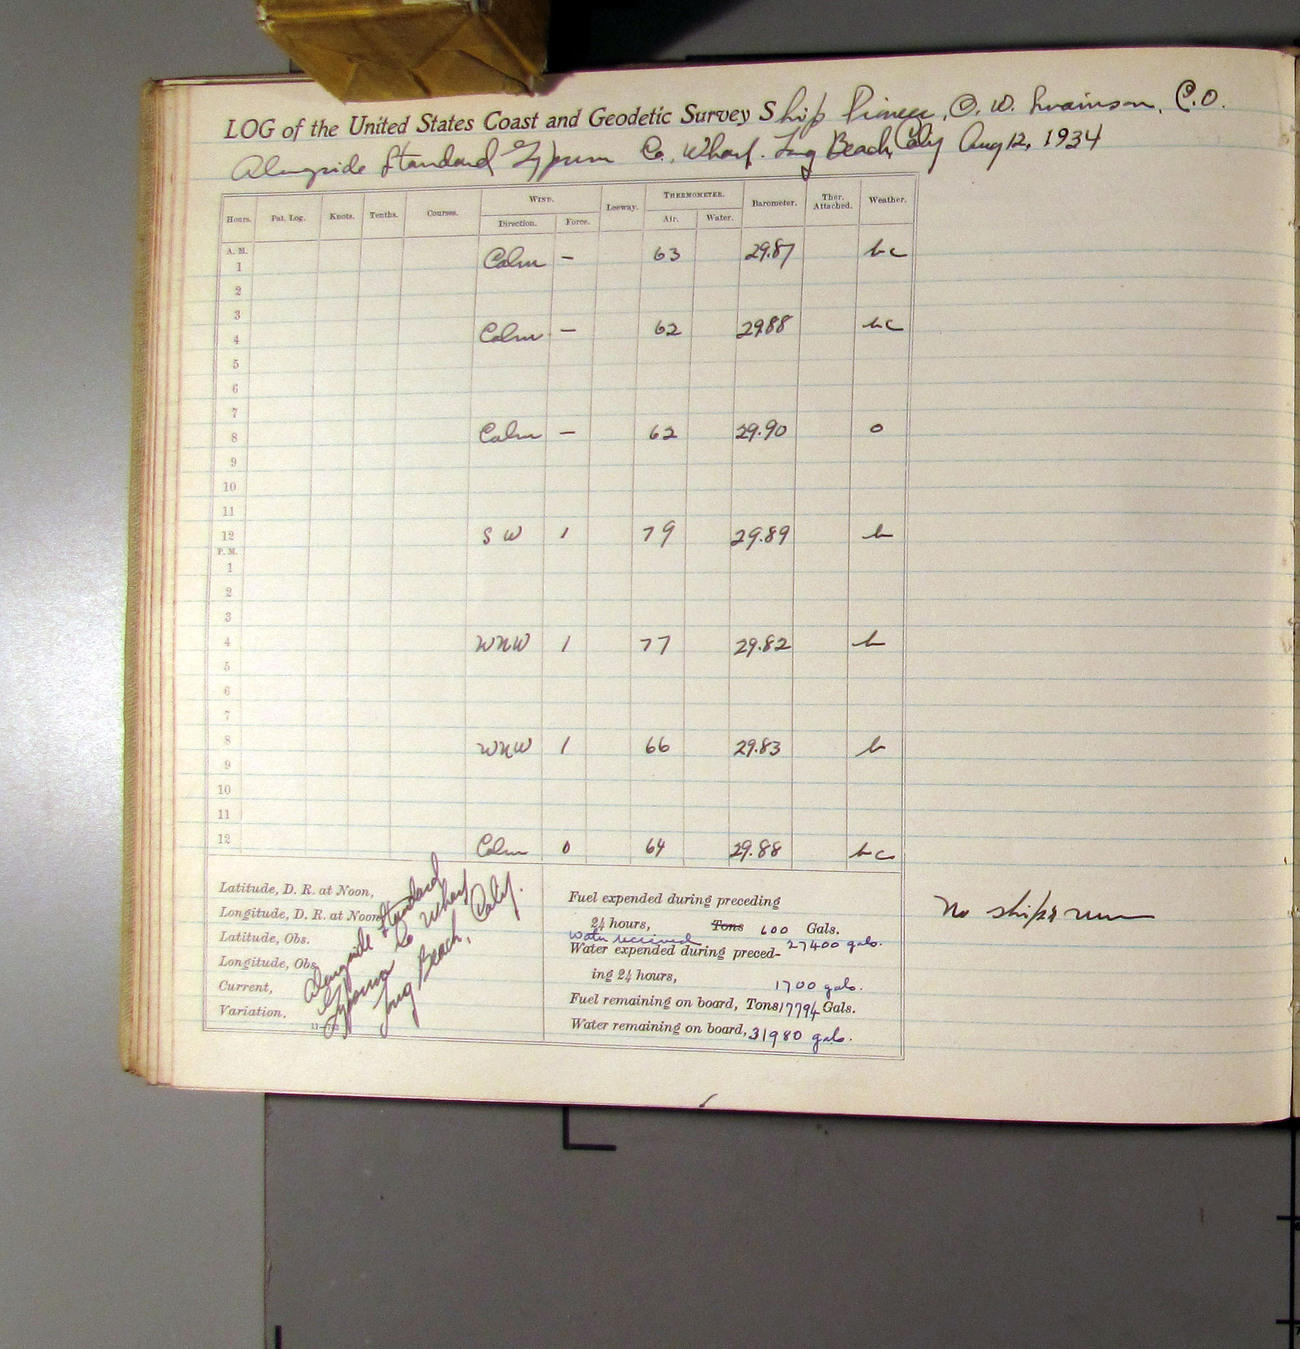 LOG of the United States Coast and Geodetic Survey Ship Pioneer, O. W. Swainson, C.O.
Alongside Standard Gypsum Co. Wharf. Long Beach, Calif Aug 12, 1934
Hours. Pat. Log. Knots. Tenths. Courses. WIND. Leeway. THERMOMETER. Barometer. Ther. Attached. Weather.
Direction. Force. Air. Water.
A. M.
1 Calm – 63 29.87 bc
2
3
4 Calm – 62 29.88 bc
5
6
7
8 Calm – 62 29.90 o
9
10
11
12 SW 1 79 29.89 b
P. M.
1
2
3
4 WNW 1 77 29.82 b
5
6
7
8 WNW 1 66 29.83 b
9
10
11
12 Calm 0 64 29.88 bc
Latitude, D. R. at Noon,
Longitude, D. R. at Noon,
Latitude, Obs.
Longitude, Obs.
Current,
Variation,
Alongside Standard
Gypsum Co Wharf
Long Beach, Calif.
Fuel expended during preceding
24 hours, Tons 600 Gals.
Water received 27400 gals.
Water expended during preced-
ing 24 hours, 1700 gals.
Fuel remaining on board, Tons 17794 Gals.
Water remaining on board, 31980 gals.
No ships run